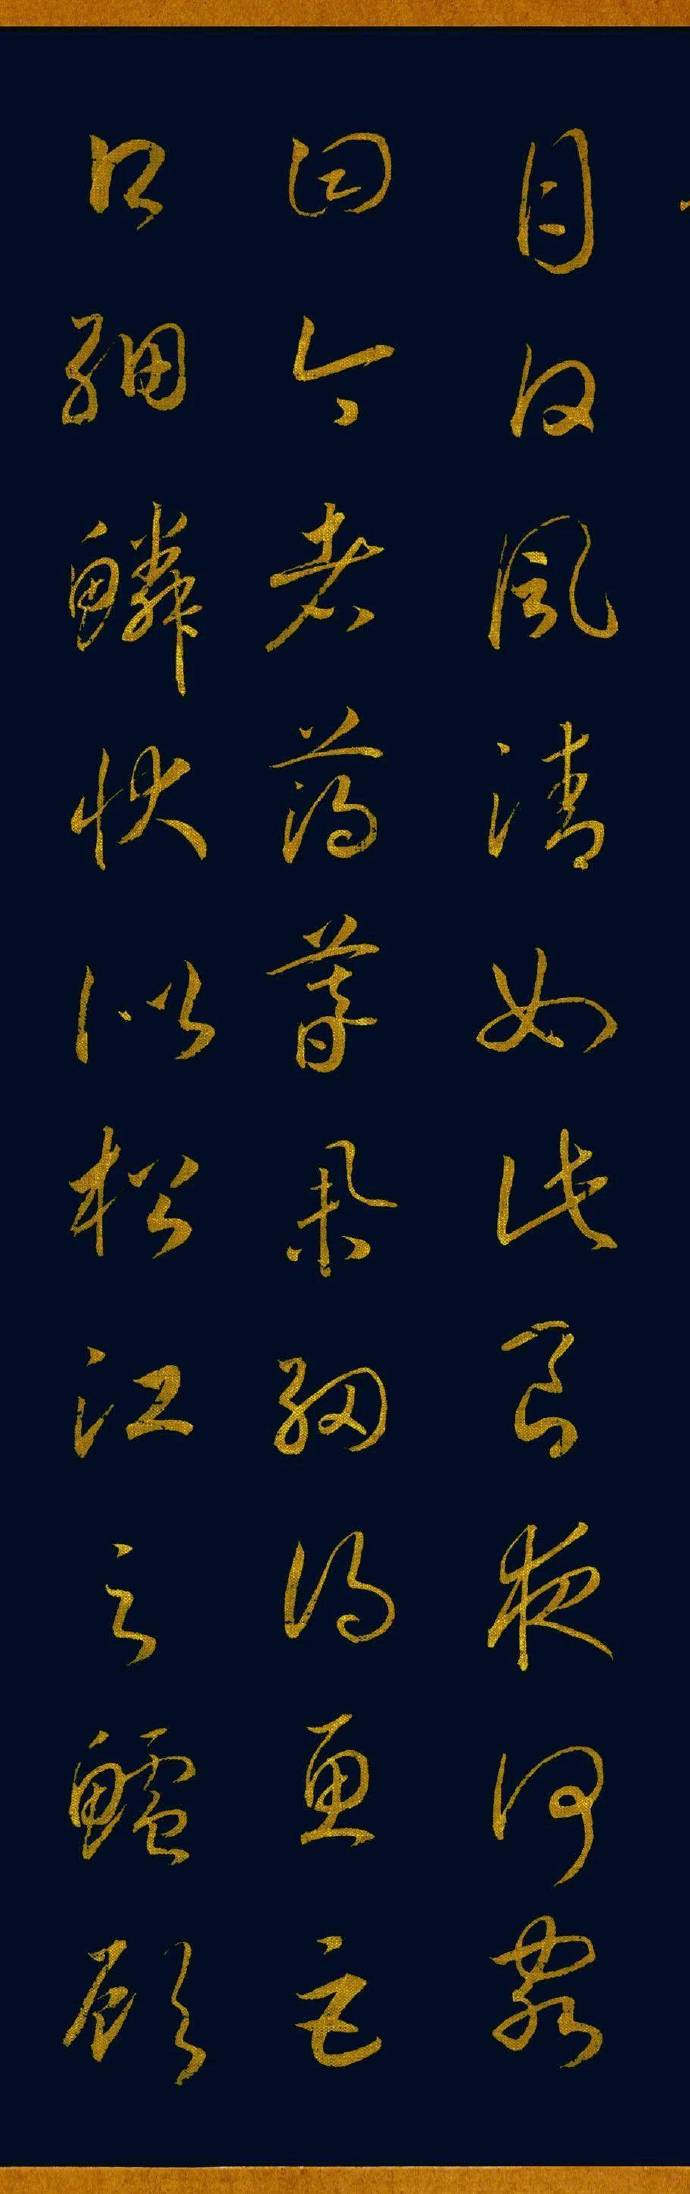 月白風清如此良夜何客
曰今者薄暮舉網得魚巨
口細鱗狀似松江之鱸顧